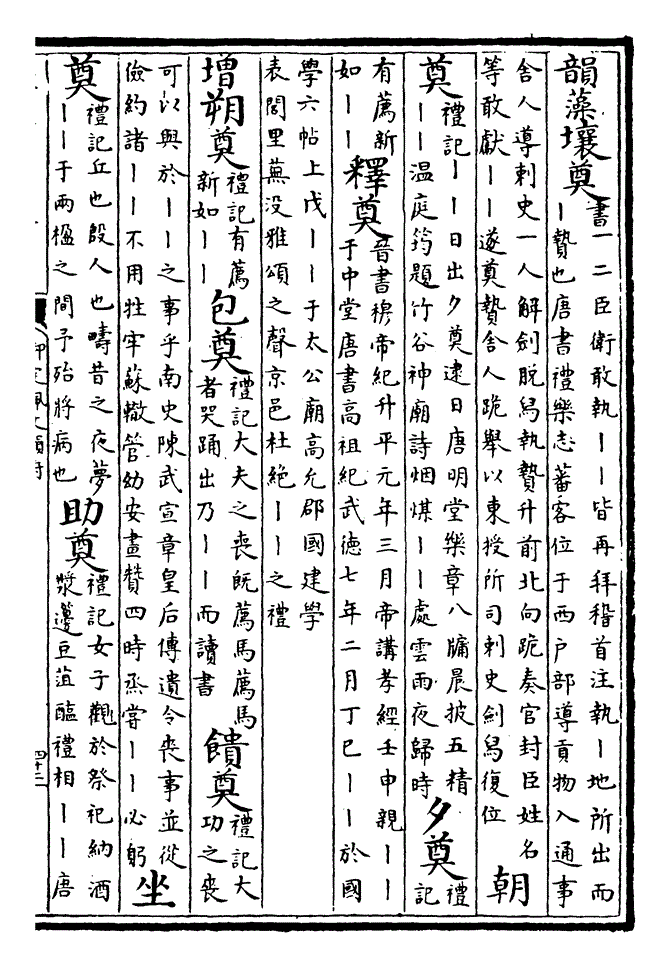 韻藻壤奠
書一二臣衛敢執丨丨皆再拜稽首注執丨地所出而
丨贄也唐書禮樂志蕃客位于西戶部導貢物入通事
舍人導刺史一人解劍脫舄執贄升前北向跪奏官封臣姓名
等敢獻丨丨遂奠贄舍人跪舉以東授所司刺史劍舄復位
朝
奠
禮記丨丨日出夕奠逮日唐明堂樂章八牖晨披五精
丨丨温庭筠題竹谷神廟詩烟煤丨丨處雲雨夜歸時
夕奠
禮
記
有薦新
如丨丨
釋奠
晉書穆帝紀升平元年三月帝講孝經壬申親丨丨
于中堂唐書高祖紀武德七年二月丁巳丨丨於國
學六帖上戊丨丨于太公廟高允郡國建學
表閭里蕪没雅頌之聲京邑杜絶丨丨之禮
增朔奠
禮記有薦
新如丨丨
包奠
禮記大夫之喪既薦馬薦馬
者哭踊出乃丨丨而讀書
饋奠
禮記大
功之喪
可以與於丨丨之事乎南史陳武宣章皇后傳遺令喪事並從
儉約諸丨丨不用牲牢蘇轍管幼安畫贊四時烝嘗丨丨必躬
坐
奠
禮記丘也殷人也疇昔之夜夢
丨丨于兩楹之間予殆將病也
助奠
禮記女子觀於祭祀納酒
漿籩豆菹醢禮相丨丨唐